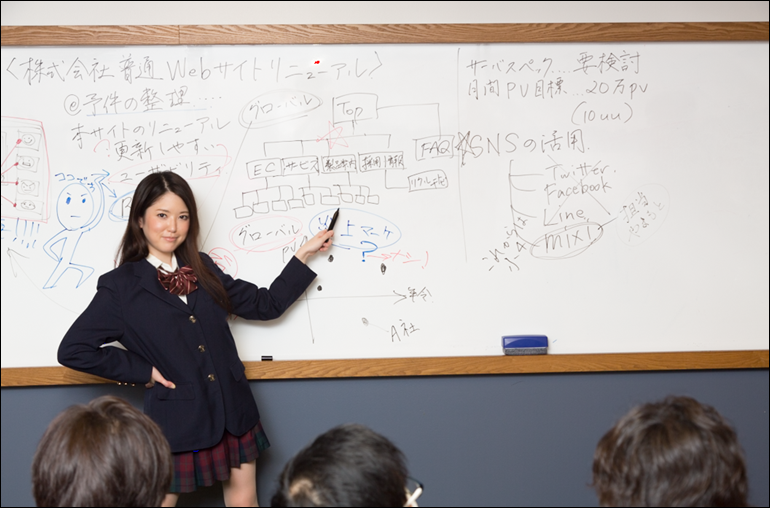 〈株式会社普通Webサイトリニューアル〉
@予件の整理....
本サイトのリニューアル
更新しやすい
ユーザビリティ
グローバル
Top
EC
サービス
採用
FAQ
グローバル
?
年令
A社
サーバスペック...要検討
月間PV目標...20万PV
(10uu)
SNSの活用
Twitter
Facebook
Line,
mixi